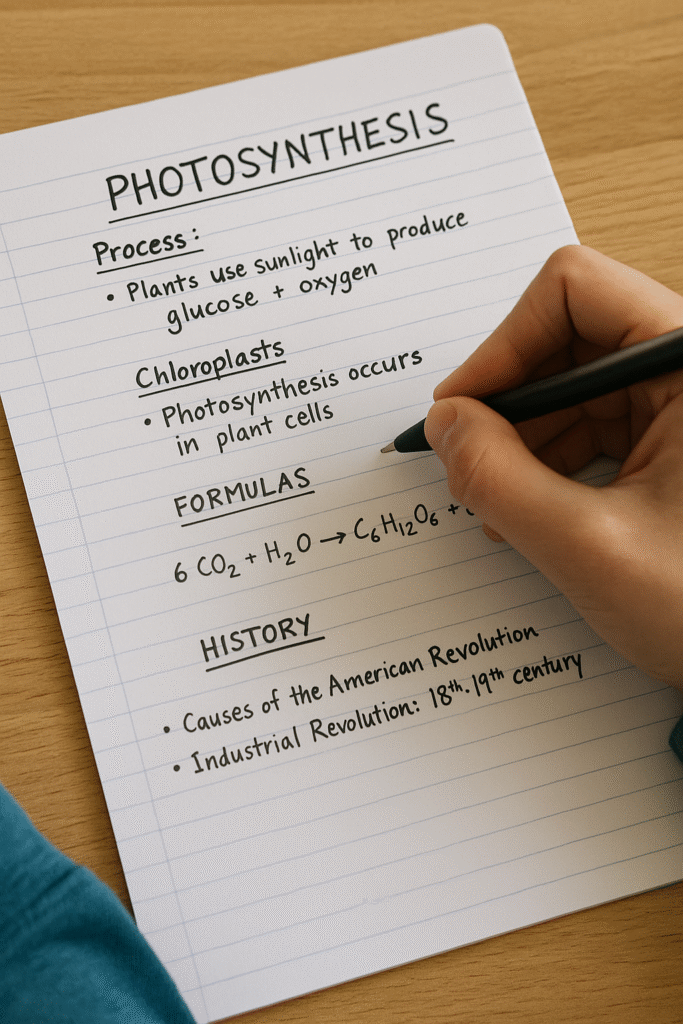 PHOTOSYNTHESIS
Process:
• Plants use sunlight to produce
glucose + oxygen
Chloroplasts
• Photosynthesis occurs
in plant cells
FORMULAS
6 CO₂ + H₂O → C₆H₁₂O₆ +
HISTORY
• Causes of the American Revolution
• Industrial Revolution: 18th-19th century